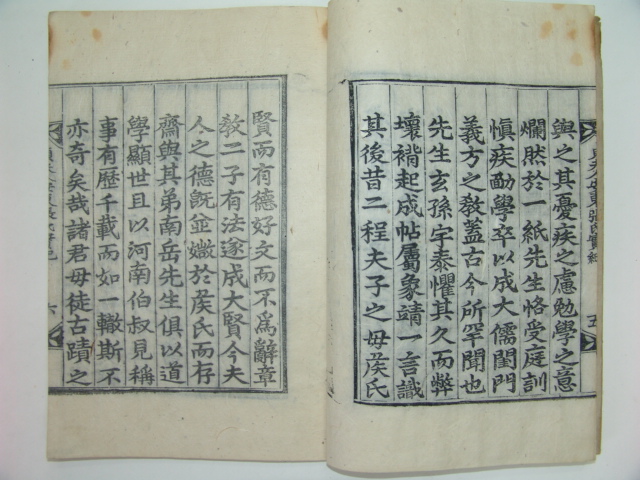 與之其憂疾之慮勉學之意
爛然於一紙先生恪受庭訓
愼疾勔學卒以成大儒閨門
義方之敎蓋古今所罕聞也
先生玄孫宇泰懼其久而弊
壞褙起成帖屬象靖一言識
其後昔二程夫子之母侯氏
賢而有德好文而不爲辭章
敎二子有法遂成大賢今夫
人之德旣並媺於侯氏而存
齋與其弟南岳先生俱以道
學顯世且以河南伯叔見稱
事有歷千載而如一轍斯不
亦奇矣哉諸君毋徒古蹟之
五
六